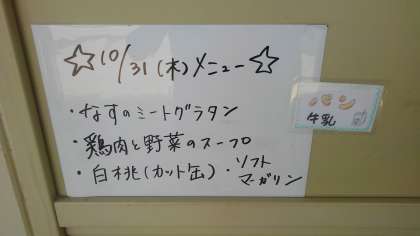 ☆10/31(木)メニュー☆
・なすのミートグラタン
・鶏肉と野菜のスープ
・白桃(カット缶)・ソフト
マーガリン
パン
牛乳